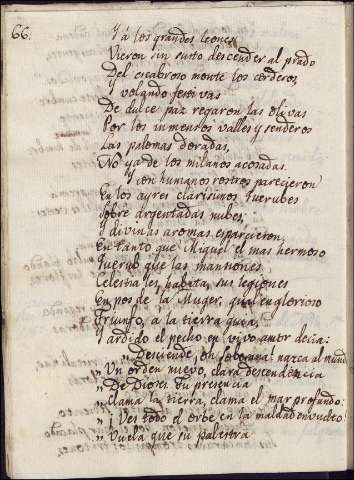 66.
Y á los grandes leones
Vieron sin susto descender al prado
Del escabroso monte los corderos,
Y volando festivas
De dulce paz regaron las olivas
Por los inmensos valles y senderos
Las palomas doradas,
No ya de los milanos acosadas.
Y con humanos rostros parecieron
En los ayres clarisimos querubes
Sobre argentadas nubes,
Y divinas aromas esparcieron,
En tanto que Miguel el mas hermoso
Querub que las mansiones
Celestiales habita, sus legiones
En pos de la Muger, qual en glorioso
Triunfo, á la tierra guia,
Y ardido el pecho en vivo amor decia:
„ Desciende, oh soberana! nazca al mundo
„ Un orden nuevo, clara descendencia
„ De Dioses. Tu presencia
„ Clama la tierra, clama el mar profundo:
„ ¡Ves todo el orbe en la maldad envuelto!
„ Vuela que su palestra